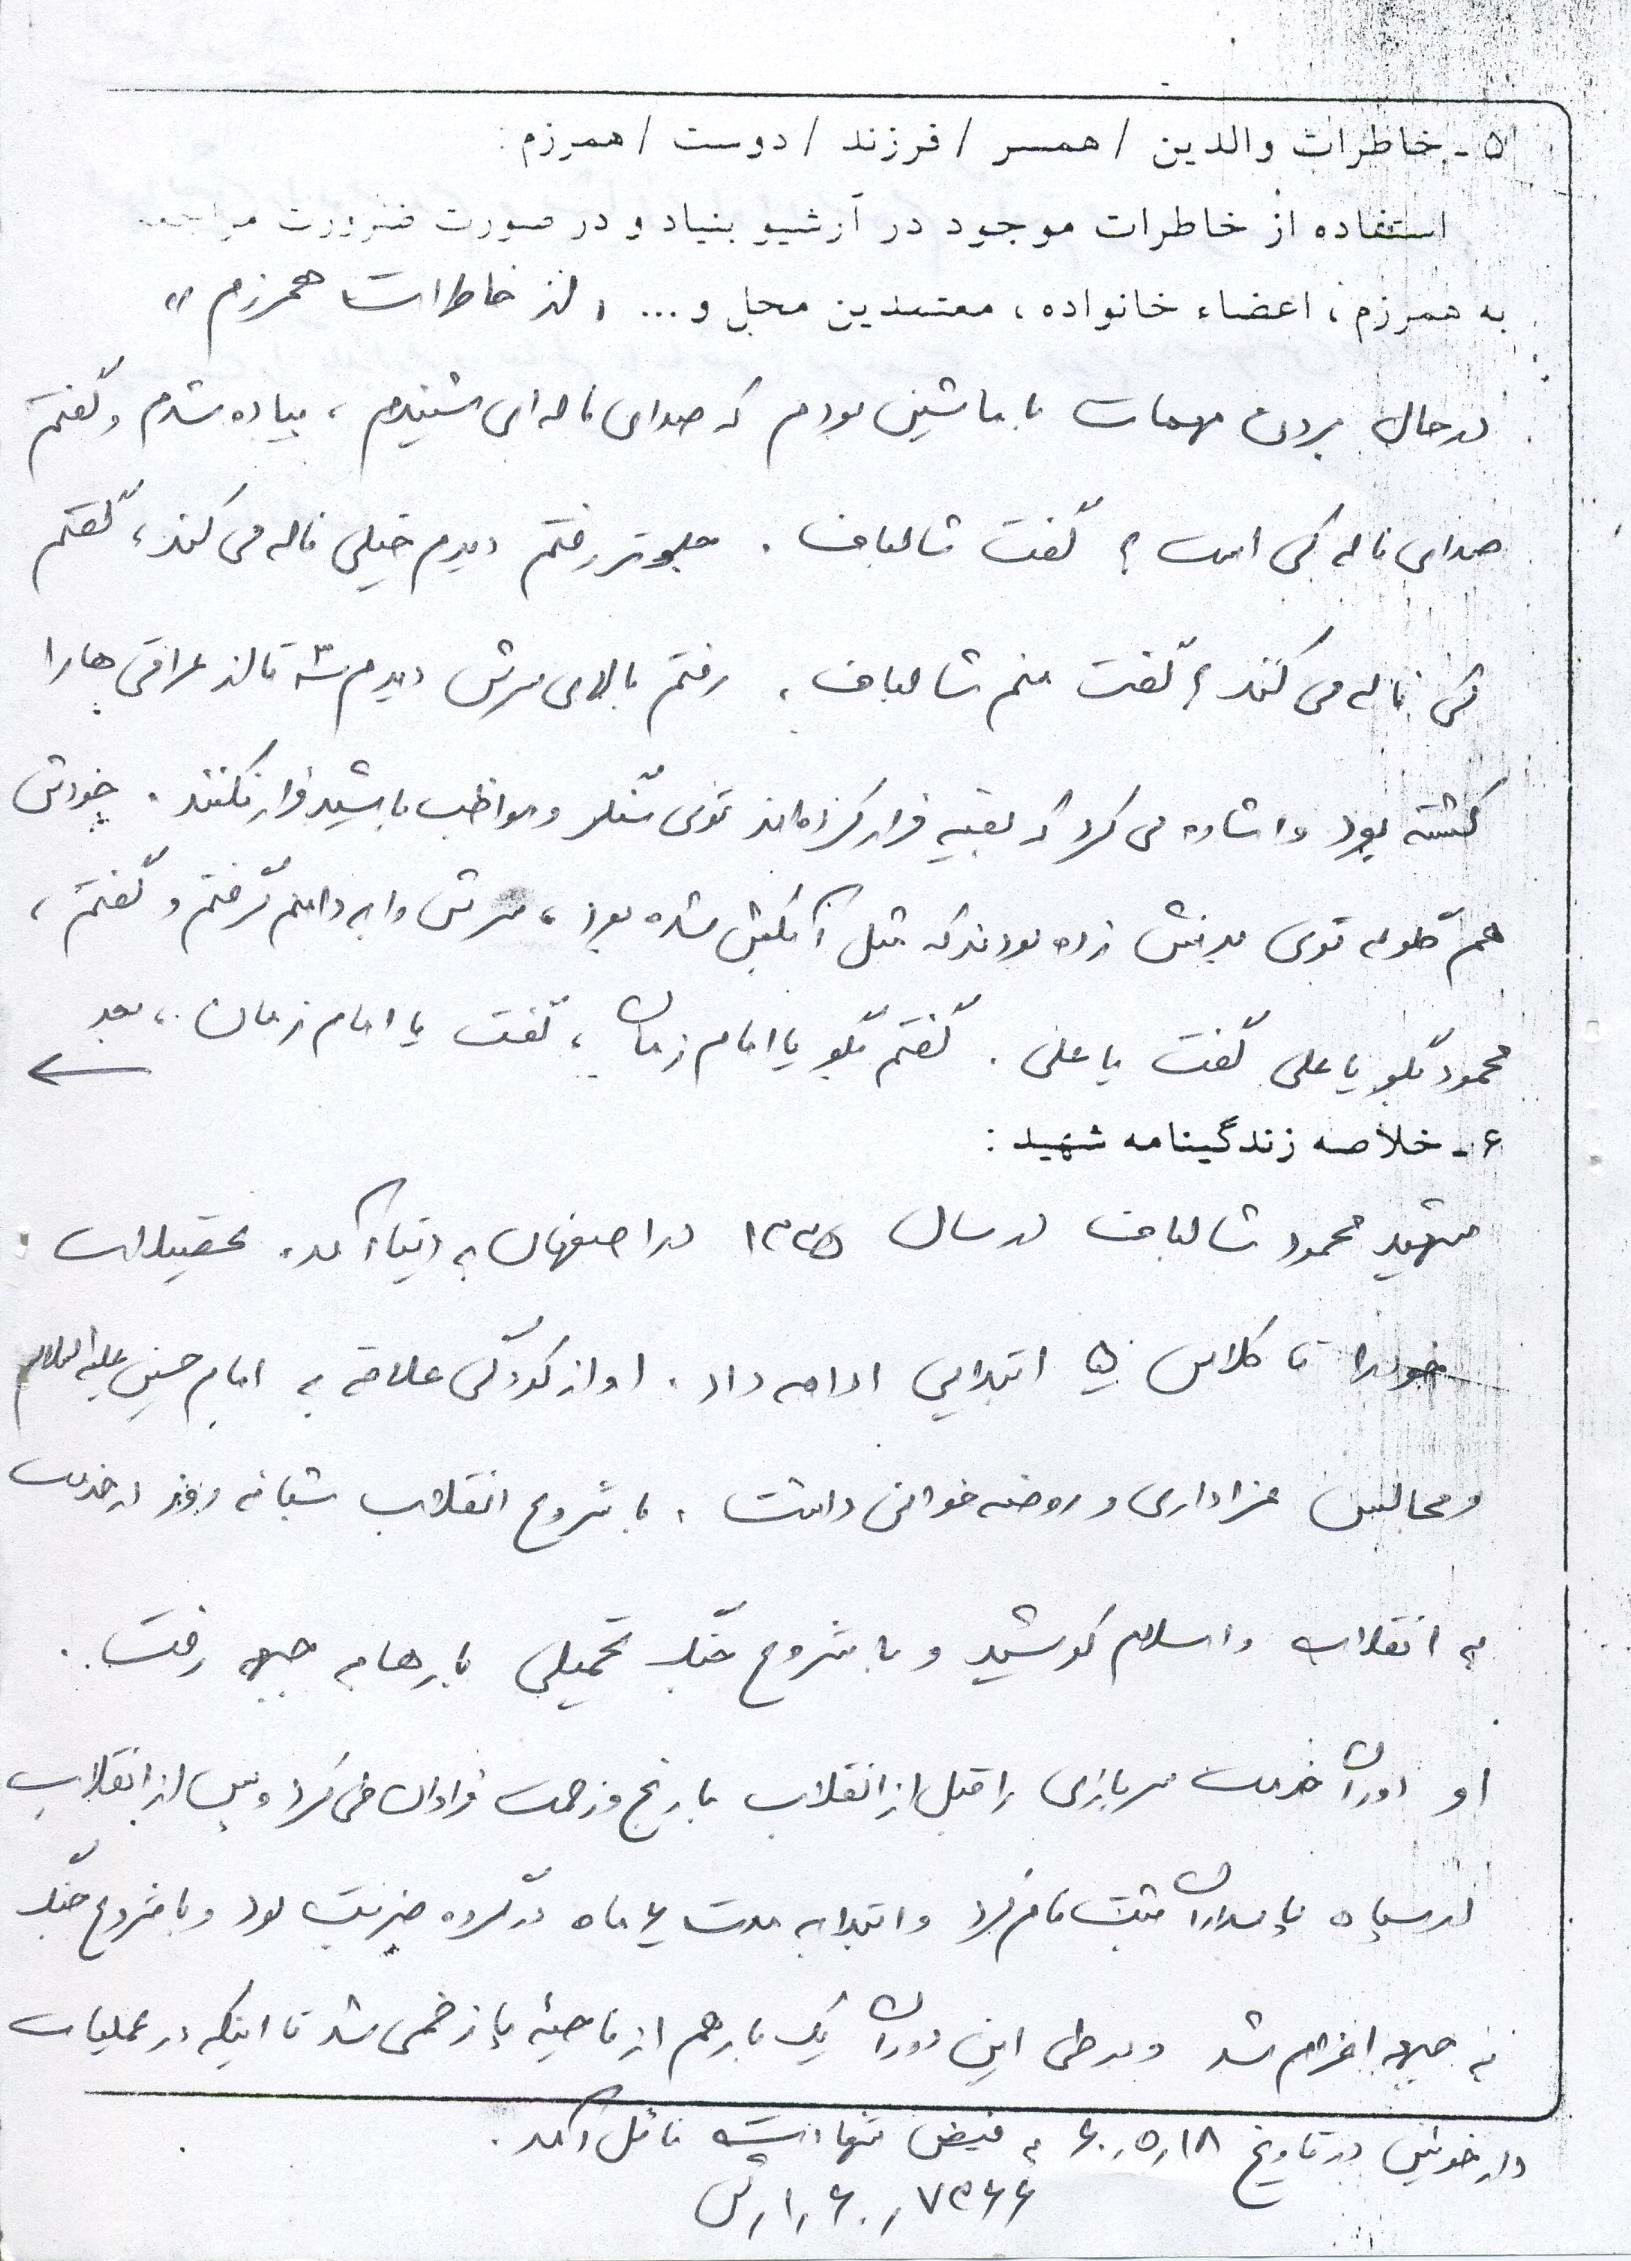 ۵ - خاطرات والدین / همسر / فرزند / دوست / همرزم :
استفاده از خاطرات موجود در آرشیو بنیاد و در صورت ضرورت مراجعه
به همرزم ، اعضاء خانواده ، معتمدین محل و ... « از خاطرات همرزم »
در حال بردن مهمات با ماشین بودم که صدای ناله ای شنیدم ، پیاده شدم و گفتم
صدای ناله کی است ؟ گفت شالباف . جلوتر رفتم دیدم خیلی ناله می کند ، گفتم
کی ناله می کند ؟ گفت منم شالباف . رفتم بالای سرش دیدم سه تا از عراقی ها را
کشته بود و اشاره می کرد که بقیه فرار کرده اند توی سنگر و مواظب باشید فرار نکنند . خودش
هم گلوله توی بدنش زده بودند که مثل آبکش شده بود ، سرش را به دامنم گرفتم و گفتم ،
محمود بگو یا علی گفت یا علی . گفتم بگو یا امام زمان ، گفت یا امام زمان ، بعد
۶ - خلاصه زندگینامه شهید :
شهید محمود شالباف در سال ۱۳۳۵ در اصفهان به دنیا آمد . تحصیلات
خود را تا کلاس ۵ ابتدایی ادامه داد . او از کودکی علاقه به امام حسین علیه السلام
و مجالس عزاداری و روضه خوانی داشت . با شروع انقلاب شبانه روز در خدمت
به انقلاب و اسلام کوشید و با شروع جنگ تحمیلی بارها به جبهه رفت .
او دوران خدمت سربازی را قبل از انقلاب با رنج و زحمت فراوان طی کرد و پس از انقلاب
در سپاه پاسداران ثبت نام کرد و ابتدا به مدت ۶ ماه در گروه ضربت بود و با شروع جنگ
به جبهه اعزام شد و در طی این دوران یک بار هم از ناحیه پا زخمی شد تا اینکه در عملیات
دارخوین در تاریخ ۶۰٫۵٫۱۸ به فیض شهادت نائل آمد .
۷۳۶۶ ر ۶۰ ر ۱ ر ش